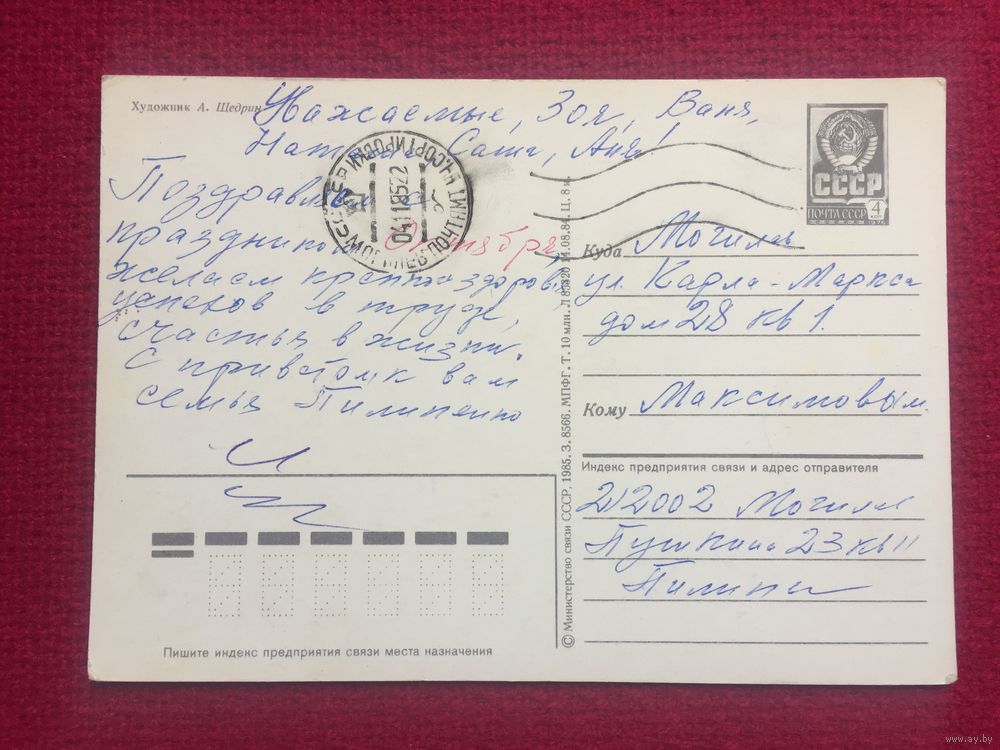 Художник А. Щедрин
Уважаемые, Зоя, Ваня,
Саша, Аня!
Поздравляем с
праздником Октября,
желаем крепко здоровья
успехов в труде,
счастья в жизни.
С приветом к вам
семья Пилипенко
СССР
ПОЧТА СССР
4
КОП
1976
04118522
Куда Могилев
ул. Карла-Маркса
дом 28 кв 1.
Кому Максимовым
Индекс предприятия связи и адрес отправителя
212002 Могилев
Пушкина 23 кв 11
Пилипен
© Министерство связи СССР, 1985. З. 8566. МПФГ. Т. 10 млн. 14.08.84. Ц. 8 к.
Пишите индекс предприятия связи места назначения
www.ay.by